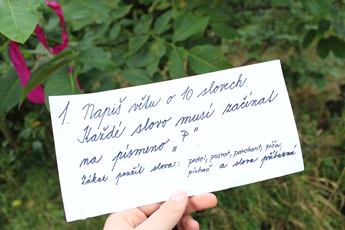 1. Napiš větu o 10 slovech.
Každé slovo musí začínat
na písmeno „P"
Zákaz použít slova: prdel, pasrat, parchant, piča,
pichat a slova příbuzná